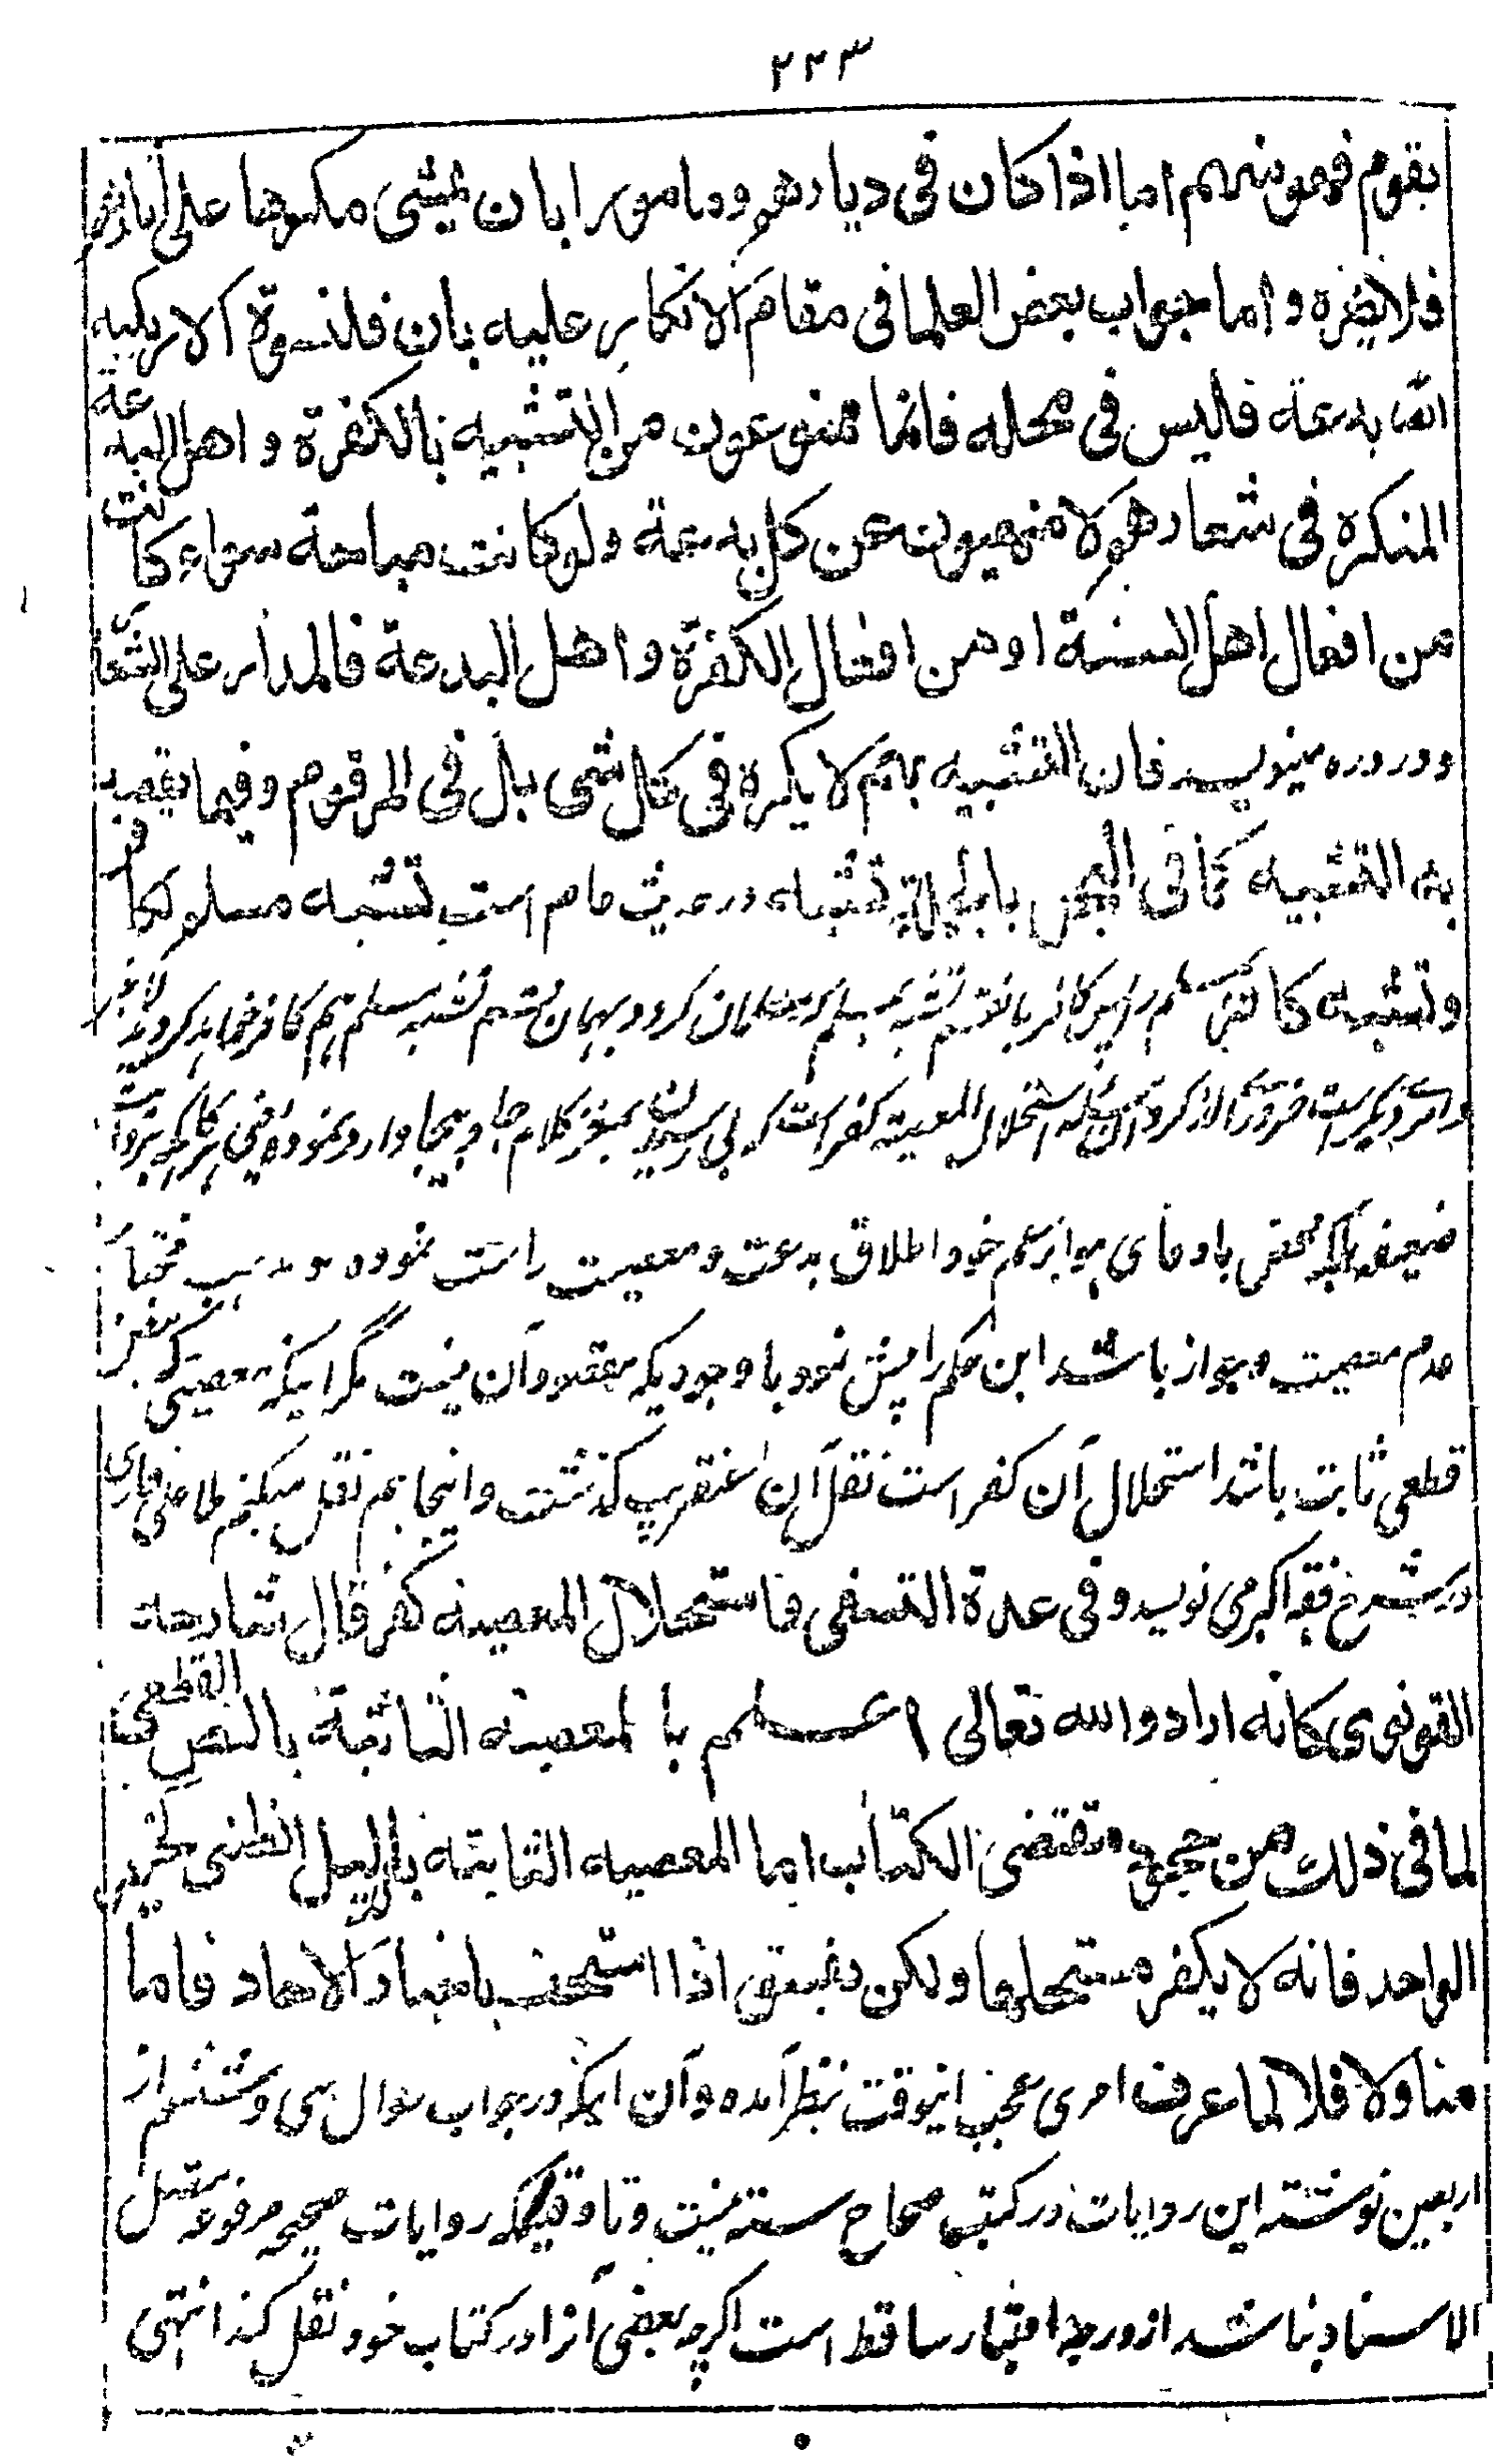 ۲۳۳
بقوم فهو منهم اما اذا كان في ديارهم ومامورا بان يمشي مكرها على آثارهم
فلا يضره واما جواب بعض العلما في مقام الانكار عليه بان قلنسوة الازبكيه
ايضا بدعة فليس في محله فانما ممنوعون من التشبيه بالكفرة واهل البدعة
المنكرة في شعارهم لا منهيون عن كل بدعة ولو كانت مباحة سواء كانت
من افعال اهل السنة او من افعال الكفرة واهل البدعة فالمدار على الشعار
ودر دره مینویسد فان التشبيه بهم لا يكره في كل شي بل في المرقوم وفيما يقصد
به التشبيه كما في البحر بالجملة تشبه در حدیث عام است تشبه مسلم بکافر
وتشبه كافر بمسلم را پس کافر باقسم تشبه بمسلم مسلمان کردد بهمان قسم تشبه مسلم هم کافر خواهد کردید
وامر دیکر است آنکه مسئله استحلال المعصیة کفر است که بی رسیدن بمغز کلام جا و بیجا وارد نموده یعنی
ضعیفه بلکه محض بادعای هوا بزعم خود اطلاق بدعت و معصیت راست نموده و مذهب مختار
عدم معصیت و جواز باشد این حکم را پیش نمود باوجودیکه مقصود آن نیست مگر اینکه معصیتی که بنص
قطعی ثابت باشد استحلال آن کفر است نقل آن عنقریب کذشت و اینجا هم نقل میکنم ملا علی قاری
در شرح فقه اکبر می نویسد وفي عمدة النسفي فاستحلال المعصية كفر قال شارحه
القونوي كانه اراد والله تعالى اعلم بالمعصية الثابتة بالنص القطعي
لما في ذلك من جحود مقتضى الكتاب اما المعصيه الثابته بالدليل الظني كخبر
الواحد فانه لا يكفر مستحلها ولكن يفسق اذا استخف باخبار الاحاد فاما
متاولا فلا لما عرف امری عجب اینوقت بنظر آمده و آن اینکه در جواب سوال سی و ششم از
اربعین نوشته این روایات در کتب صحاح سته نیست و تا وقتیکه روایات صحیحه مرفوعه متصل
الاسناد نباشد از درجه اعتبار ساقط است اکرچه بعضی آنرا در کتاب خود نقل کند انتهی